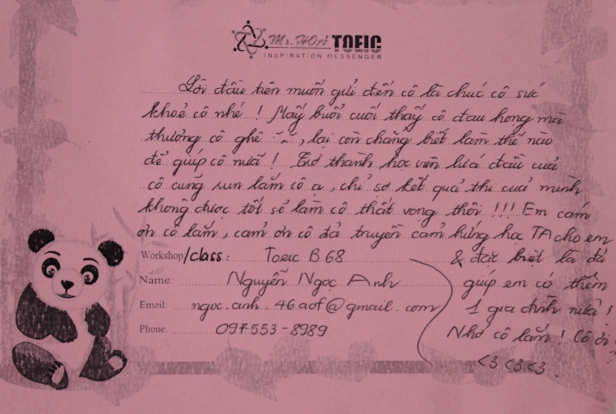 Ms. HOA TOEIC
INSPIRATION MESSENGER
Lời đầu tiên muốn gửi đến cô là chúc cô sức
khoẻ cô nhé ! Mấy buổi cuối thấy cô đau họng mà
thương cô ghê , lại còn chẳng biết làm thế nào
để giúp cô nữa ! Trở thành học viên lứa đầu của
cô cũng run lắm cô ạ, chỉ sợ kết quả thi của mình
không được tốt sẽ làm cô thất vọng thôi !!! Em cảm
ơn cô lắm, cảm ơn cô đã truyền cảm hứng học TA cho em
& đặc biệt là đã
giúp em có thêm
1 gia đình nữa !
Nhớ cô lắm ! Cô ơi
<3 <3 <3
Workshop/class: Toeic B68
Name: Nguyễn Ngọc Anh
Email: ngoc.anh.46aof@gmail.com
Phone: 097-553-8989